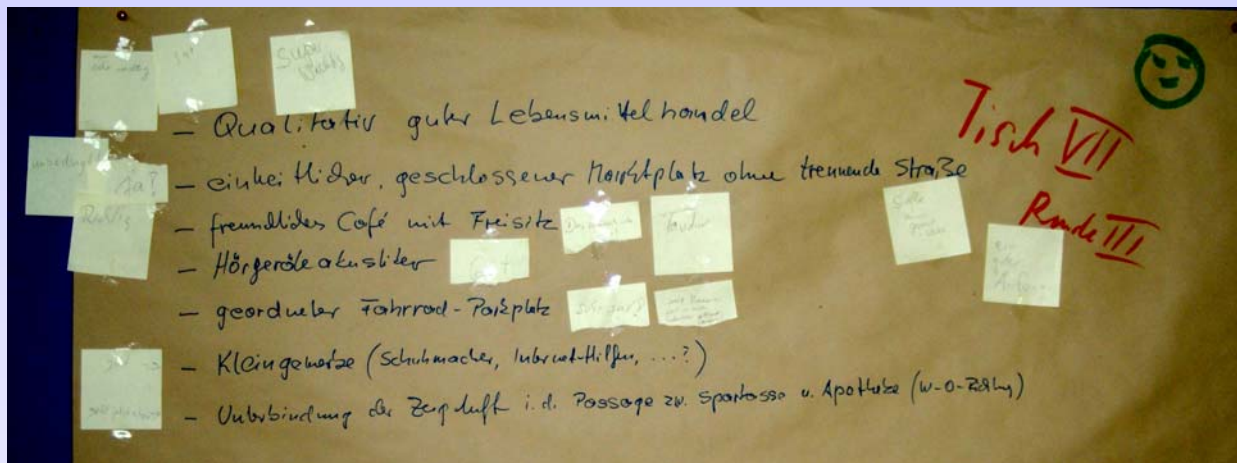 Sehr wichtig
gut
Super
wichtig
Tisch VII
Runde III
– Qualitativ guter Lebensmittelhandel
unbedingt
Ja?
– einheitlicher, geschlossener Marktplatz ohne trennende Straße
Richtig
– freundliches Café mit Freisitz
– Hörgeräteakustiker
Gut
– geordneter Fahrrad-Parkplatz
Sehr gut!
– Kleingewerbe (Schuhmacher, Internet-Hilfen, ...?)
– Unterbindung der Zugluft i.d. Passage zw. Sparkasse u. Apotheke (W-O-Richtg)